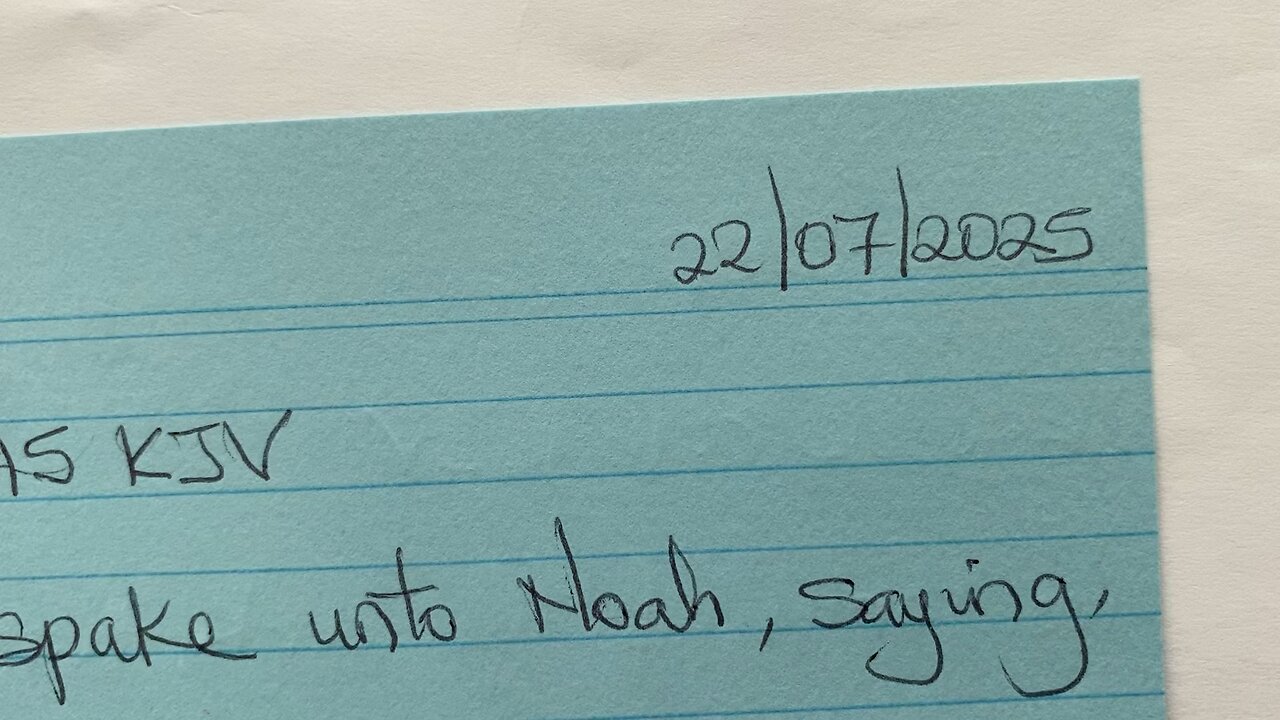 22/07/2025
15 KJV
spake unto Noah, saying,